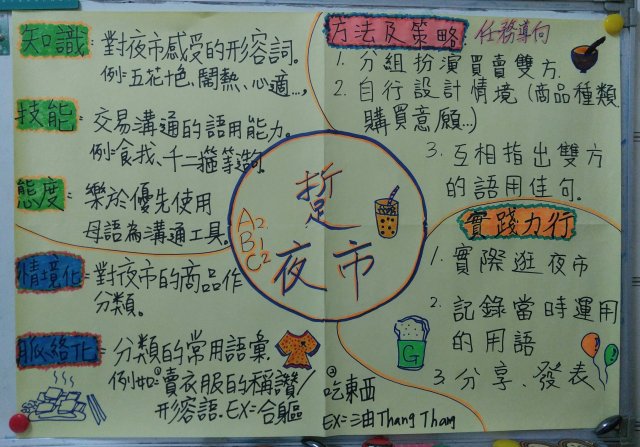 知識: 對夜市感受的形容詞。
例: 五花十色、鬧熱、心適…,
技能: 交易溝通的語用能力。
例: 食我、千二箍等造句。
態度: 樂於優先使用
母語為溝通工具。
情境化: 對夜市的商品作
分類。
脈絡化: 分類的常用語彙。
例如①賣衣服的稱讚/
形容語. EX= 合軀
②吃東西
EX= 油Thang Thang
踅
夜市
A2.
B1
C2
方法及策略. 任務導向
1. 分組扮演買賣雙方.
2. 自行設計情境 (商品種類.
購買意願…)
3. 互相指出雙方
的語用佳句.
實踐力行
1. 實際逛夜市
2. 記錄當時運用
的用語
3. 分享、發表
G